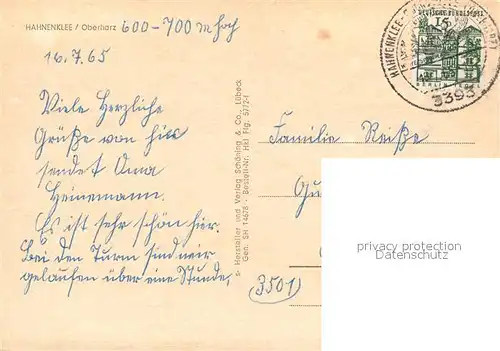 HAHNENKLEE / Oberharz 600-700 m hoch
16.7.65
HAHNENKLEE-
DEUTSCHE BUNDESPOST
15
BERLIN
3393
Viele Herzliche
Grüße von hier
sendet Oma
Heinemann.
Es ist sehr schön hier.
Bei den Turm sind wir
gelaufen über eine Stunde,
Hersteller und Verlag Schöning & Co., Lübeck
Gen. SH 14678 - Bestell-Nr. Hkl Flg. 5772-f
Familie Reiße
Gu
3501
privacy protection
Datenschutz